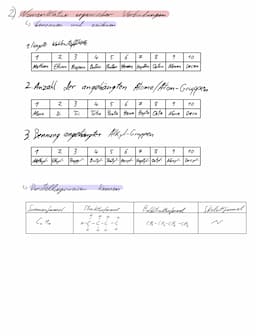 2) Nomenklatur organischer Verbindungen
↳ benennen und zeichnen
1 längste Kohlenstoffkette
1 2 3 4 5 6 7 8 9 10
Methan Ethan Propan Butan Pentan Hexan Heptan Octan Nonan Decan
2. Anzahl der angehängten Atome/Atom-Gruppen
1 2 3 4 5 6 7 8 9 10
Mono Di Tri Tetra Penta Hexa Hepta Octa Nona Deca
3 Benennung angehängter Alkyl-Gruppen
1 2 3 4 5 6 7 8 9 10
Methyl- Ethyl- Propyl- Butyl- Pentyl- Hexyl- Heptyl- Octyl- Nonyl- Decyl-
↳ Darstellungsweisen kennen
Summenformel Strukturformel Halbstrukturformel Skelettformel
-C-C-C-C-
CH₃-CH₂-CH₂-CH₃